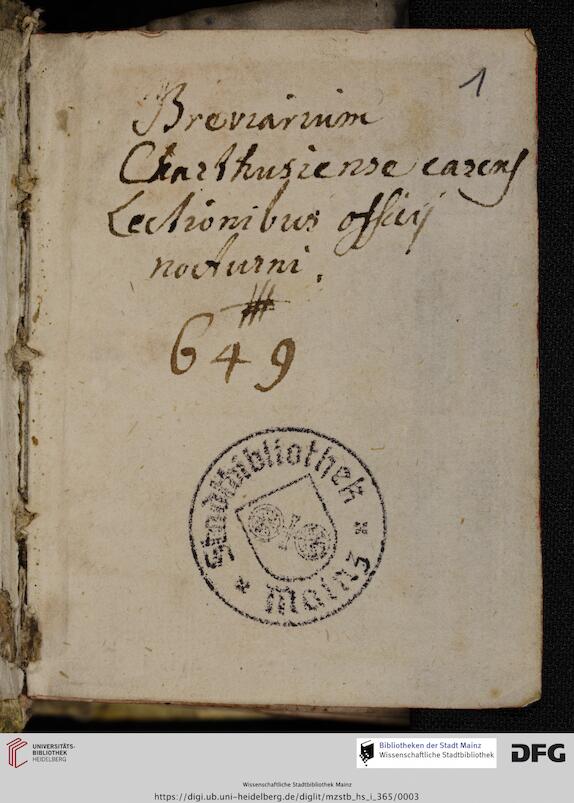 1
Breviarium
Charthusiense carens
Lectionibus officij
nocturni.
649
Stadtbibliothek
* Mainz *
UNIVERSITÄTS-
BIBLIOTHEK
HEIDELBERG
Bibliotheken der Stadt Mainz
Wissenschaftliche Stadtbibliothek
DFG
Wissenschaftliche Stadtbibliothek Mainz
https://digi.ub.uni-heidelberg.de/diglit/mzstb_hs_i_365/0003